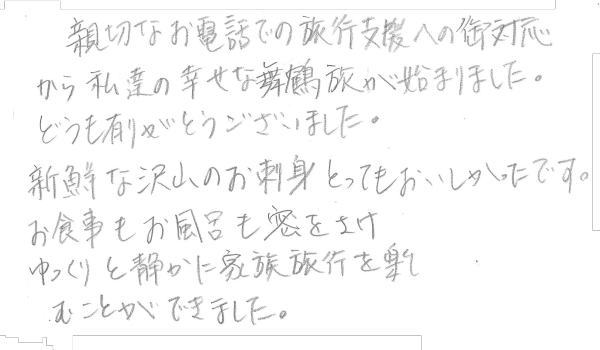 親切なお電話での旅行支援への御対応
から私達の幸せな舞鶴旅が始まりました。
どうも有りがとうございました。
新鮮な沢山のお刺身とってもおいしかったです。
お食事もお風呂も密をさけ
ゆっくりと静かに家族旅行を楽し
むことができました。